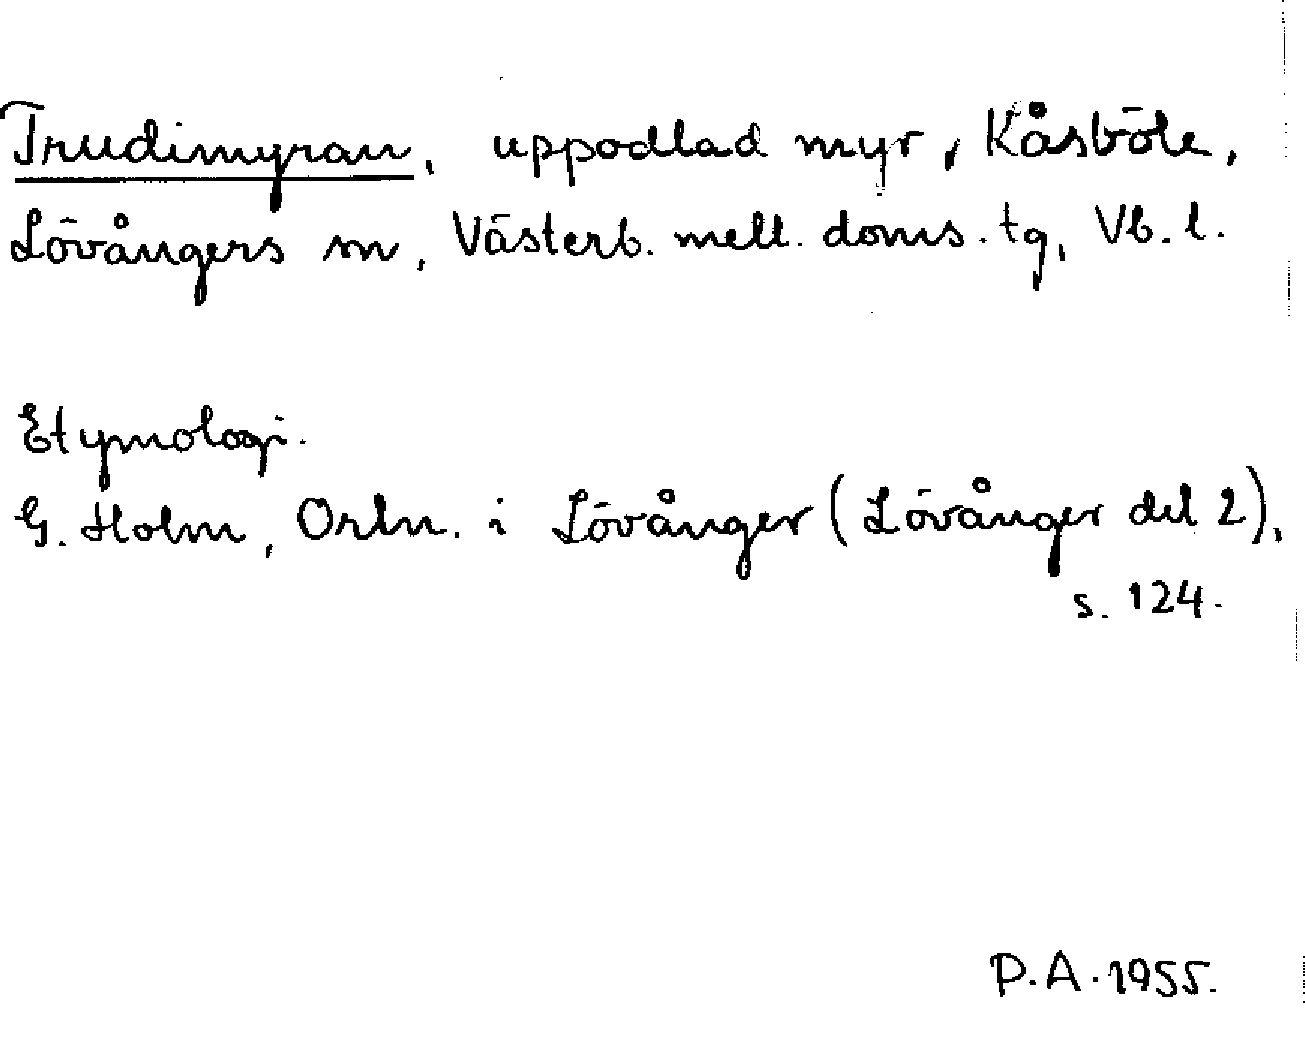 Trudimyran, uppodlad myr, Kåsböle,
Lövångers sn, Västerb. mell. doms. tg, Vb. l.
Etymologi.
G. Holm, Ortn. i Lövånger (Lövånger del 2),
s. 124.
P.A. 1955.